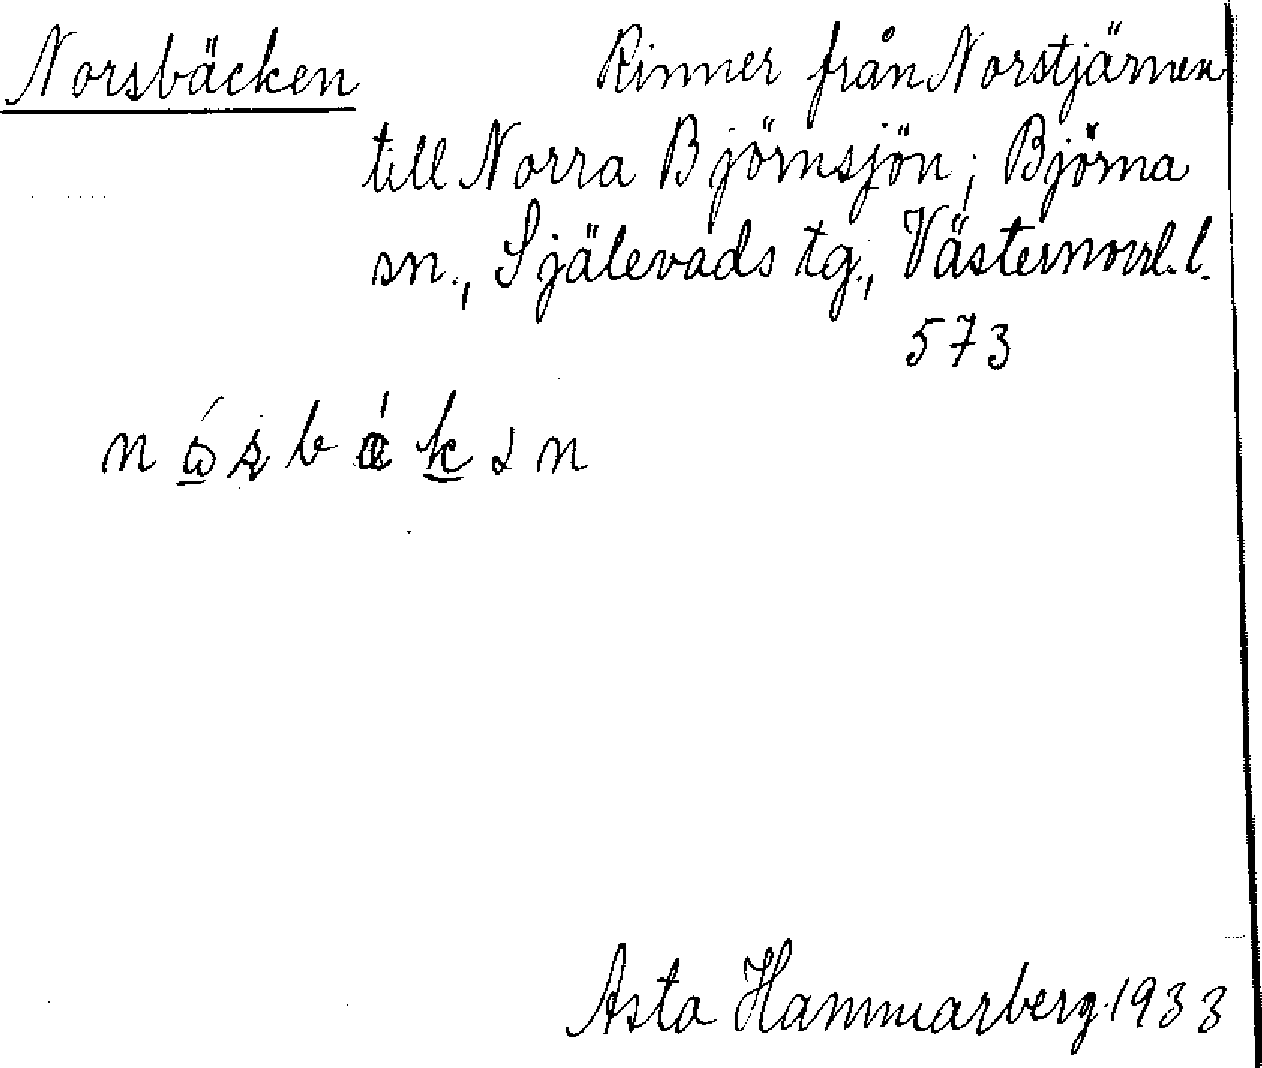 Norsbäcken Rinner från Norstjärnen
till Norra Björnsjön; Björna
sn., Själevads tg., Västernorrl. l.
573
Asta Hammarberg. 1933